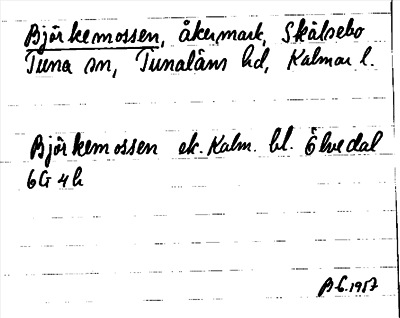 Björkemossen, åkermark, Skälsebo
Tuna sn, Tunaläns hd, Kalmar l.
Björkemossen ek. Kalm. bl. Ölvedal
6G 4h
B.G. 1957